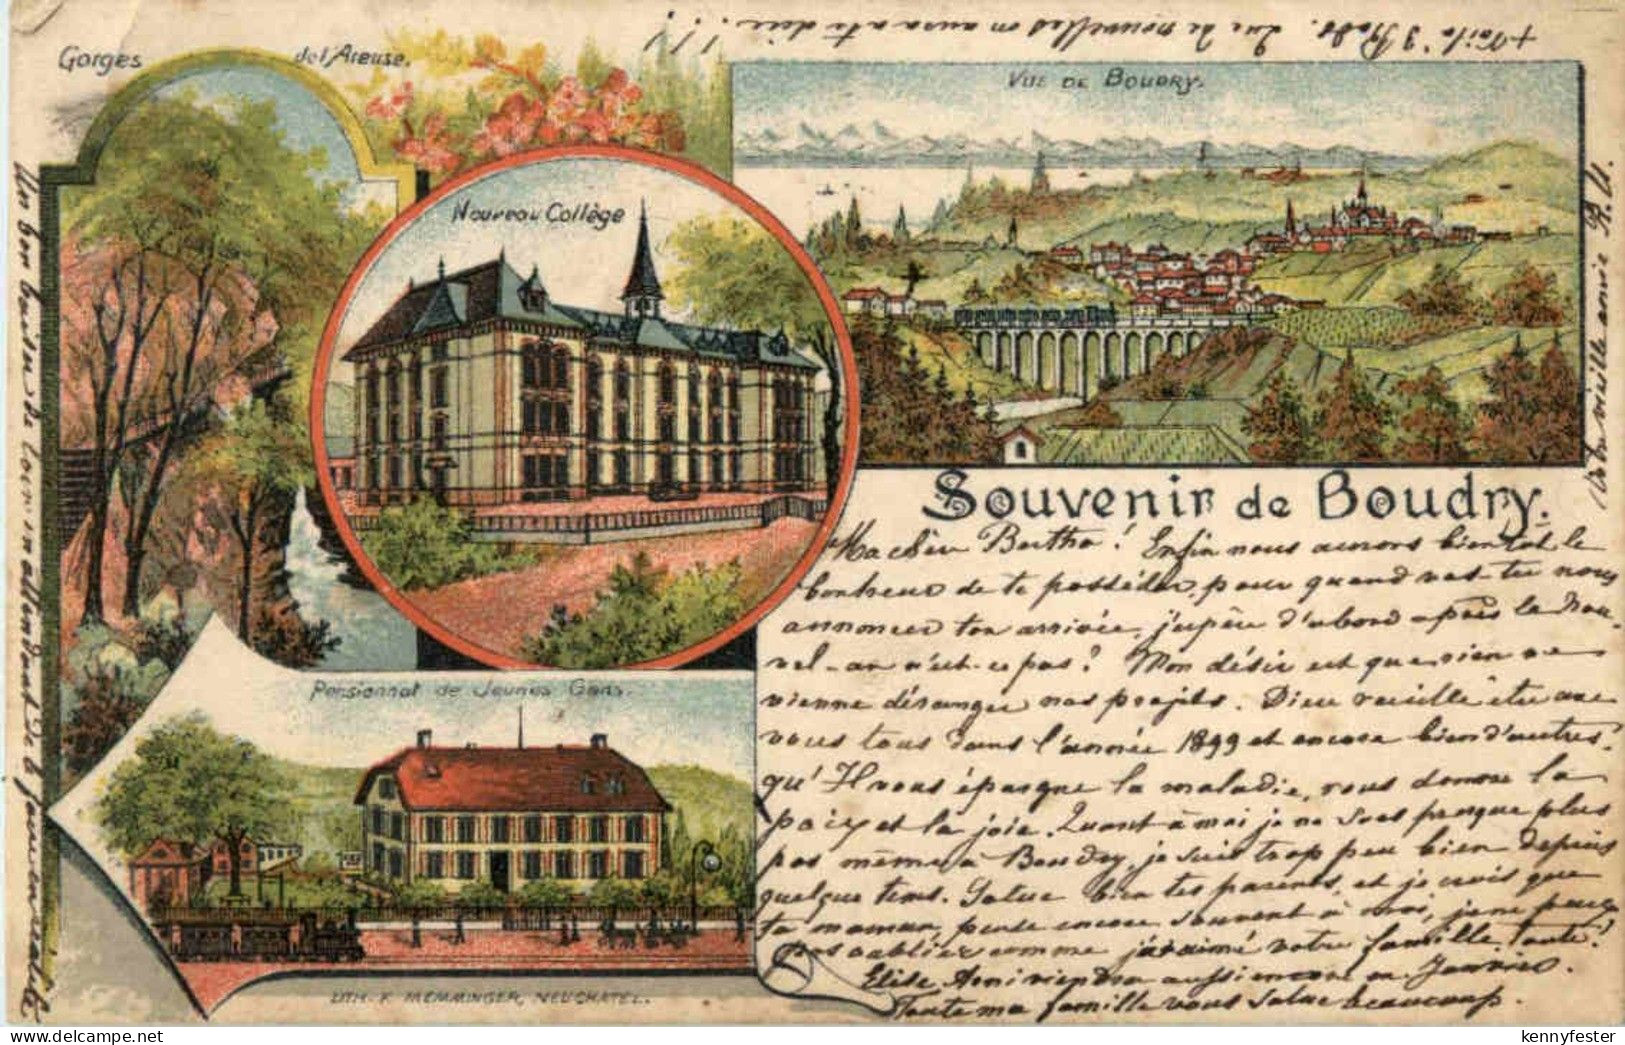 + Voilà 3 de nouvelles on aura à te dire !!!
Gorges de l'Areuse.
Vue de Boudry.
Nouveau Collège
Souvenir de Boudry.
Ma chère Bertha! Enfin nous aurons bientôt le
bonheur de te posséder, pour quand vas-tu nous
annoncer ton arrivée, j'espère d'abord après le Nou-
vel-an n'est-ce pas? Mon désir est que rien ne
vienne déranger nos projets. Dieu veuille être avec
vous tous dans l'année 1899 et encore bien d'autres!
qu'Il vous épargne la maladie, vous donne la
paix et la joie. Quant à moi je ne sors presque plus
pas même à Boudry, je suis trop peu bien depuis
quelque tems. Salue bien tes parents, et je crois que
ta maman pense encore souvent à moi, je ne peux
pas oublier comme j'ai aimé votre famille, toute!
Elise viendra aussi encore en Janvier.
Toute ma famille vous salue beaucoup.
Pensionnat de Jeunes Gens.
LITH. F. MEMMINGER, NEUCHATEL.
Un bon de
vieille amie
kennyfester